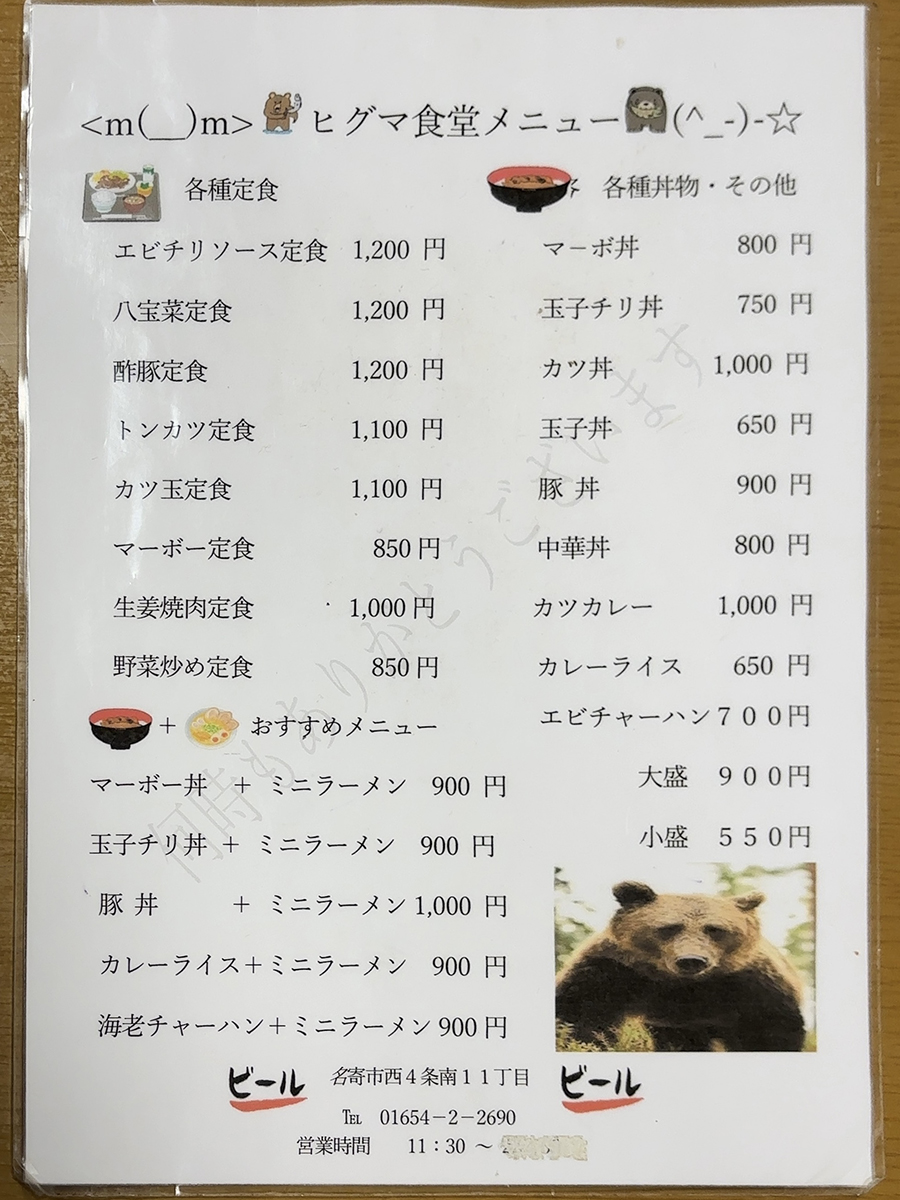 <m(__)m>ヒグマ食堂メニュー(^_-)-☆
各種定食
エビチリソース定食 1,200 円
八宝菜定食 1,200 円
酢豚定食 1,200 円
トンカツ定食 1,100 円
カツ玉定食 1,100 円
マーボー定食 850円
生姜焼肉定食 1,000円
野菜炒め定食 850円
各種丼物・その他
マーボ丼 800 円
玉子チリ丼 750 円
カツ丼 1,000 円
玉子丼 650 円
豚 丼 900 円
中華丼 800 円
カツカレー 1,000 円
カレーライス 650 円
エビチャーハン700円
大盛 900円
小盛 550円
+ おすすめメニュー
マーボー丼 + ミニラーメン 900 円
玉子チリ丼 + ミニラーメン 900 円
豚 丼 + ミニラーメン 1,000 円
カレーライス+ミニラーメン 900 円
海老チャーハン+ミニラーメン 900円
何時もありがとうございます
ビール 名寄市西4条南11丁目 ビール
℡ 01654-2-2690
営業時間 11:30 ~